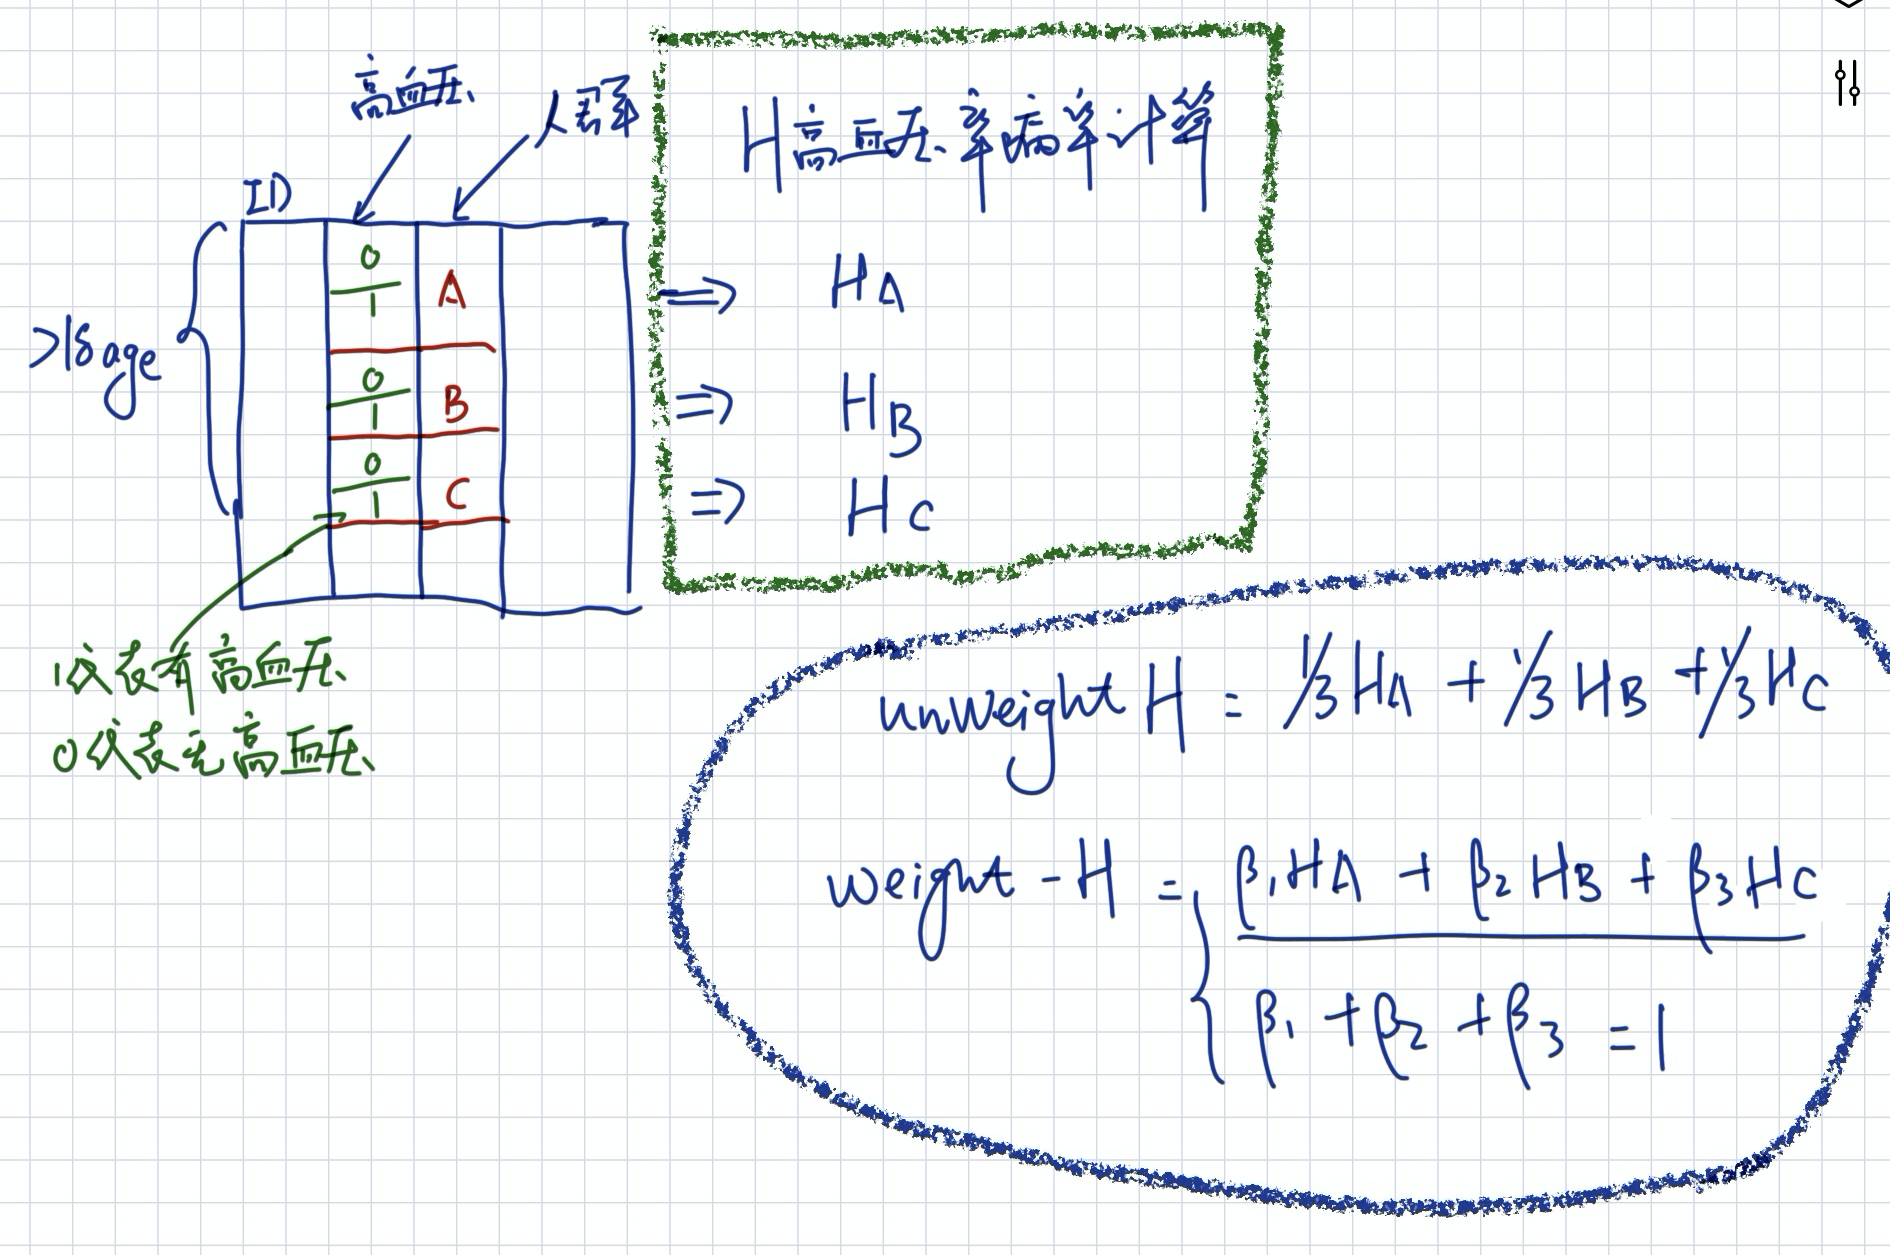 高血压
人群
ID
>18 age
0
1
A
0
1
B
0
1
C
1代表有高血压
0代表无高血压
H高血压率病率计算
⇒ HA
⇒ HB
⇒ HC
unweight H = 1/3 HA + 1/3 HB + 1/3 HC
weight - H = β1HA + β2HB + β3HC
β1 + β2 + β3 = 1